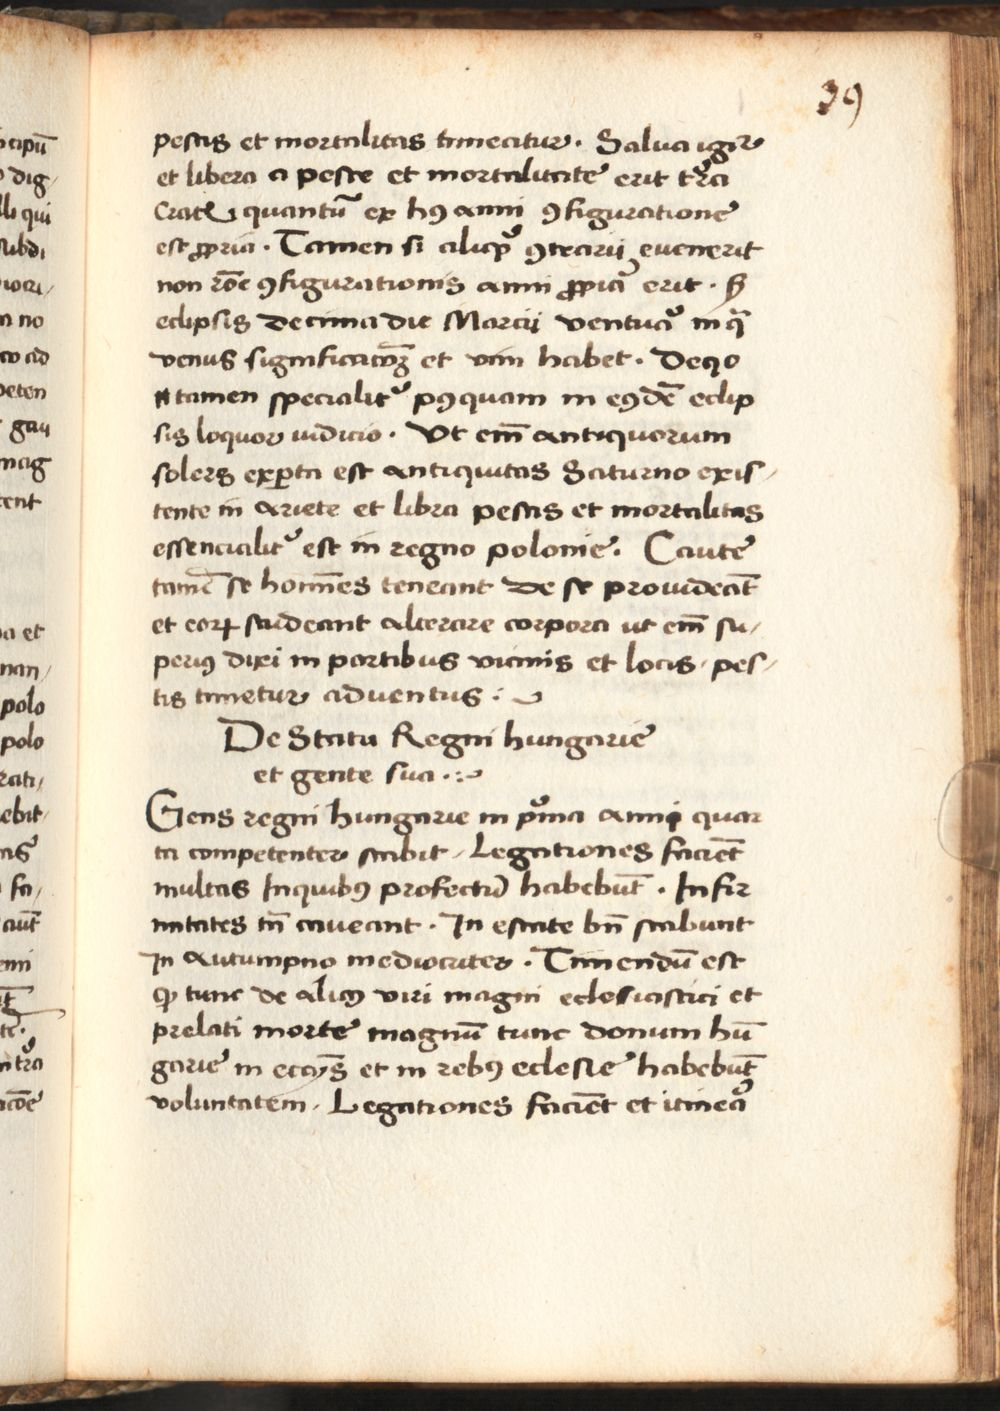 39
pestis et mortalitas timeatur. Salua igit̃
et libera a peste et mortalitate erit tr̃a
quantũ ex hꝰ anni ꝯfiguratione
est ꝓpria. Tamen si aliqͥd ꝯtrarii euenerit
non rõe ꝯfigurationis anni erit. Sꝫ
eclipsis decima die Marcii ventura in qͣ
venus significacõꝫ et vim habet. De qͦ
tamen specialit̾ pꝰquam in eꝰdẽ eclip
sis loquor iudicio. Ut em̃ antiquorum
solers exꝑta est antiquitas Saturno exis-
tente in ariete et libra pestis et mortalitas
essencialit̾ est in regno polonie. Caute
tamẽ se hoĩnes teneant de se prouideãt
et eorꝝ studeant alterare corpora ut em̃ su-
periꝰ dixi in partibus vicinis et locis pes-
tis timetur aduentus :
De Statu Regni hungarie
et gente sua .:
Gens regni hungarie in pͥma anni quar
ta competenter stabit, Legationes faciẽt
multas Inquibꝰ profectũ habebũt. Infir
mitates tñ caueant. In estate bñ stabunt
In Autumpno mediocriter. Timendũ est
qꝫ tunc de alicꝰ viri magni eclesiastici et
prelati morte magnũ tunc donum hũ
garie in et in rebꝰ eclesie habebũt
voluntatem, Legationes faciẽt et itinera